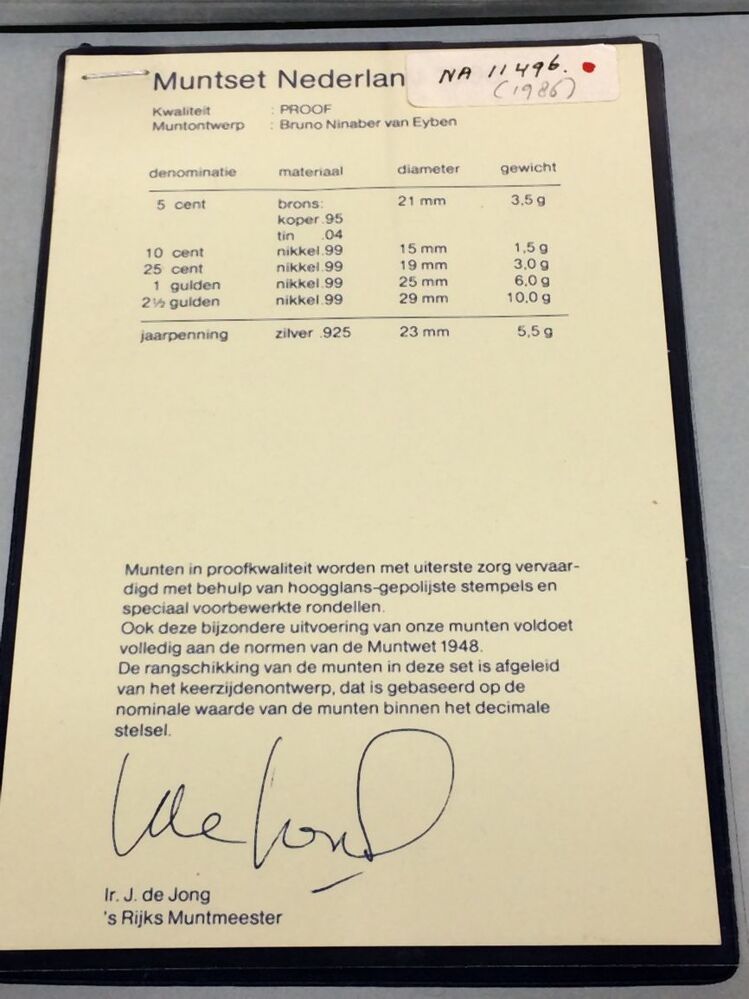 Muntset Nederlan
NA 11496.
(1986)
Kwaliteit : PROOF
Muntontwerp : Bruno Ninaber van Eyben
denominatie materiaal diameter gewicht
5 cent brons: 21 mm 3,5 g
koper .95
tin .04
10 cent nikkel .99 15 mm 1,5 g
25 cent nikkel .99 19 mm 3,0 g
1 gulden nikkel .99 25 mm 6,0 g
2½ gulden nikkel .99 29 mm 10,0 g
jaarpenning zilver .925 23 mm 5,5 g
Munten in proofkwaliteit worden met uiterste zorg vervaar-
digd met behulp van hoogglans-gepolijste stempels en
speciaal voorbewerkte rondellen.
Ook deze bijzondere uitvoering van onze munten voldoet
volledig aan de normen van de Muntwet 1948.
De rangschikking van de munten in deze set is afgeleid
van het keerzijdenontwerp, dat is gebaseerd op de
nominale waarde van de munten binnen het decimale
stelsel.
Ir. J. de Jong
's Rijks Muntmeester